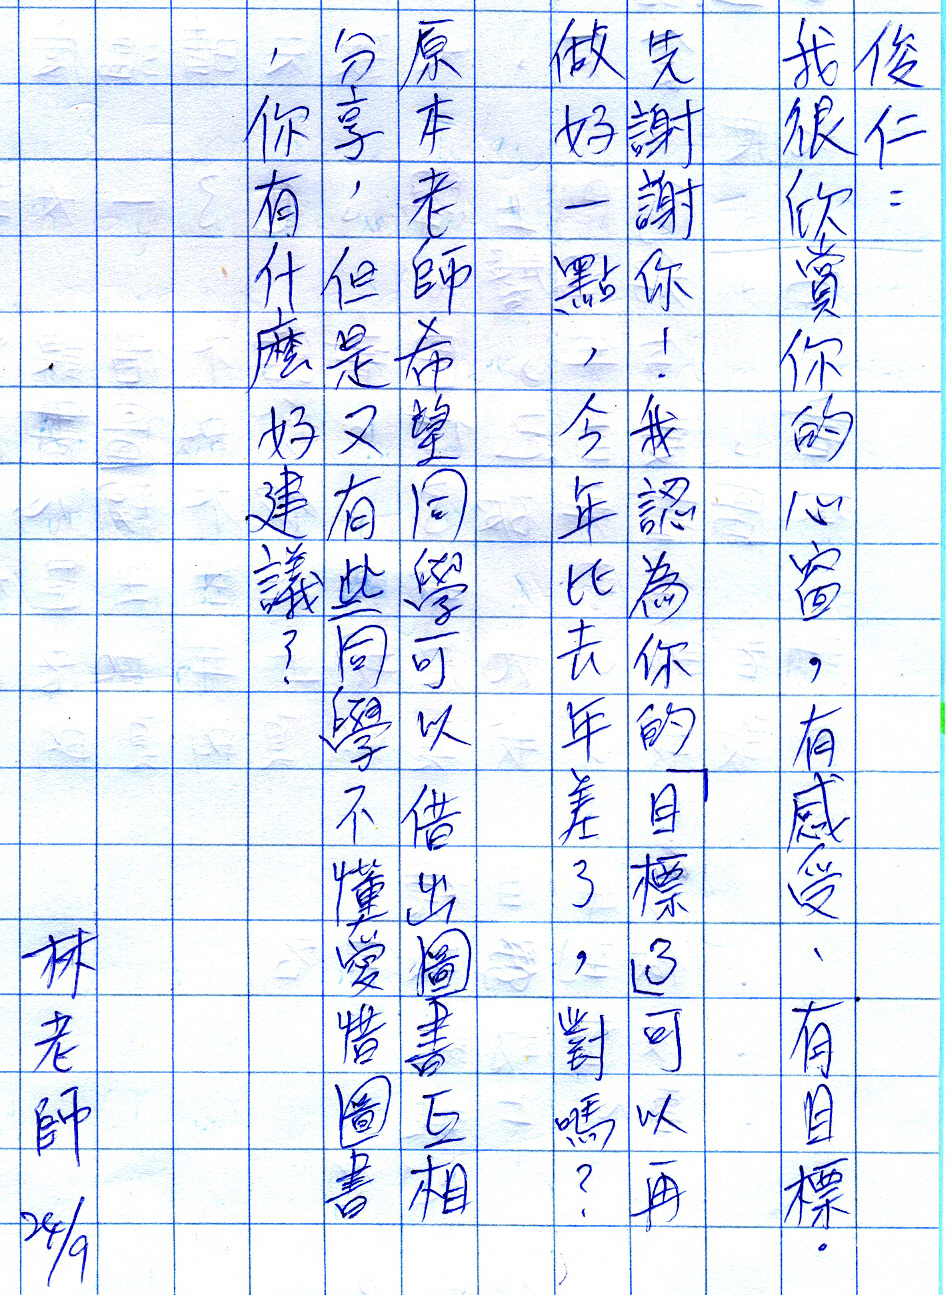 俊仁：
我很欣賞你的心窗，有感受、有目標．
先謝謝你！我認為你的「目標」3可以再
做好一點，今年比去年差了，對嗎？
原本老師希望同學可以借出圖書互相
分享，但是又有些同學不懂愛惜圖書
，你有什麼好建議？
林老師 24/9